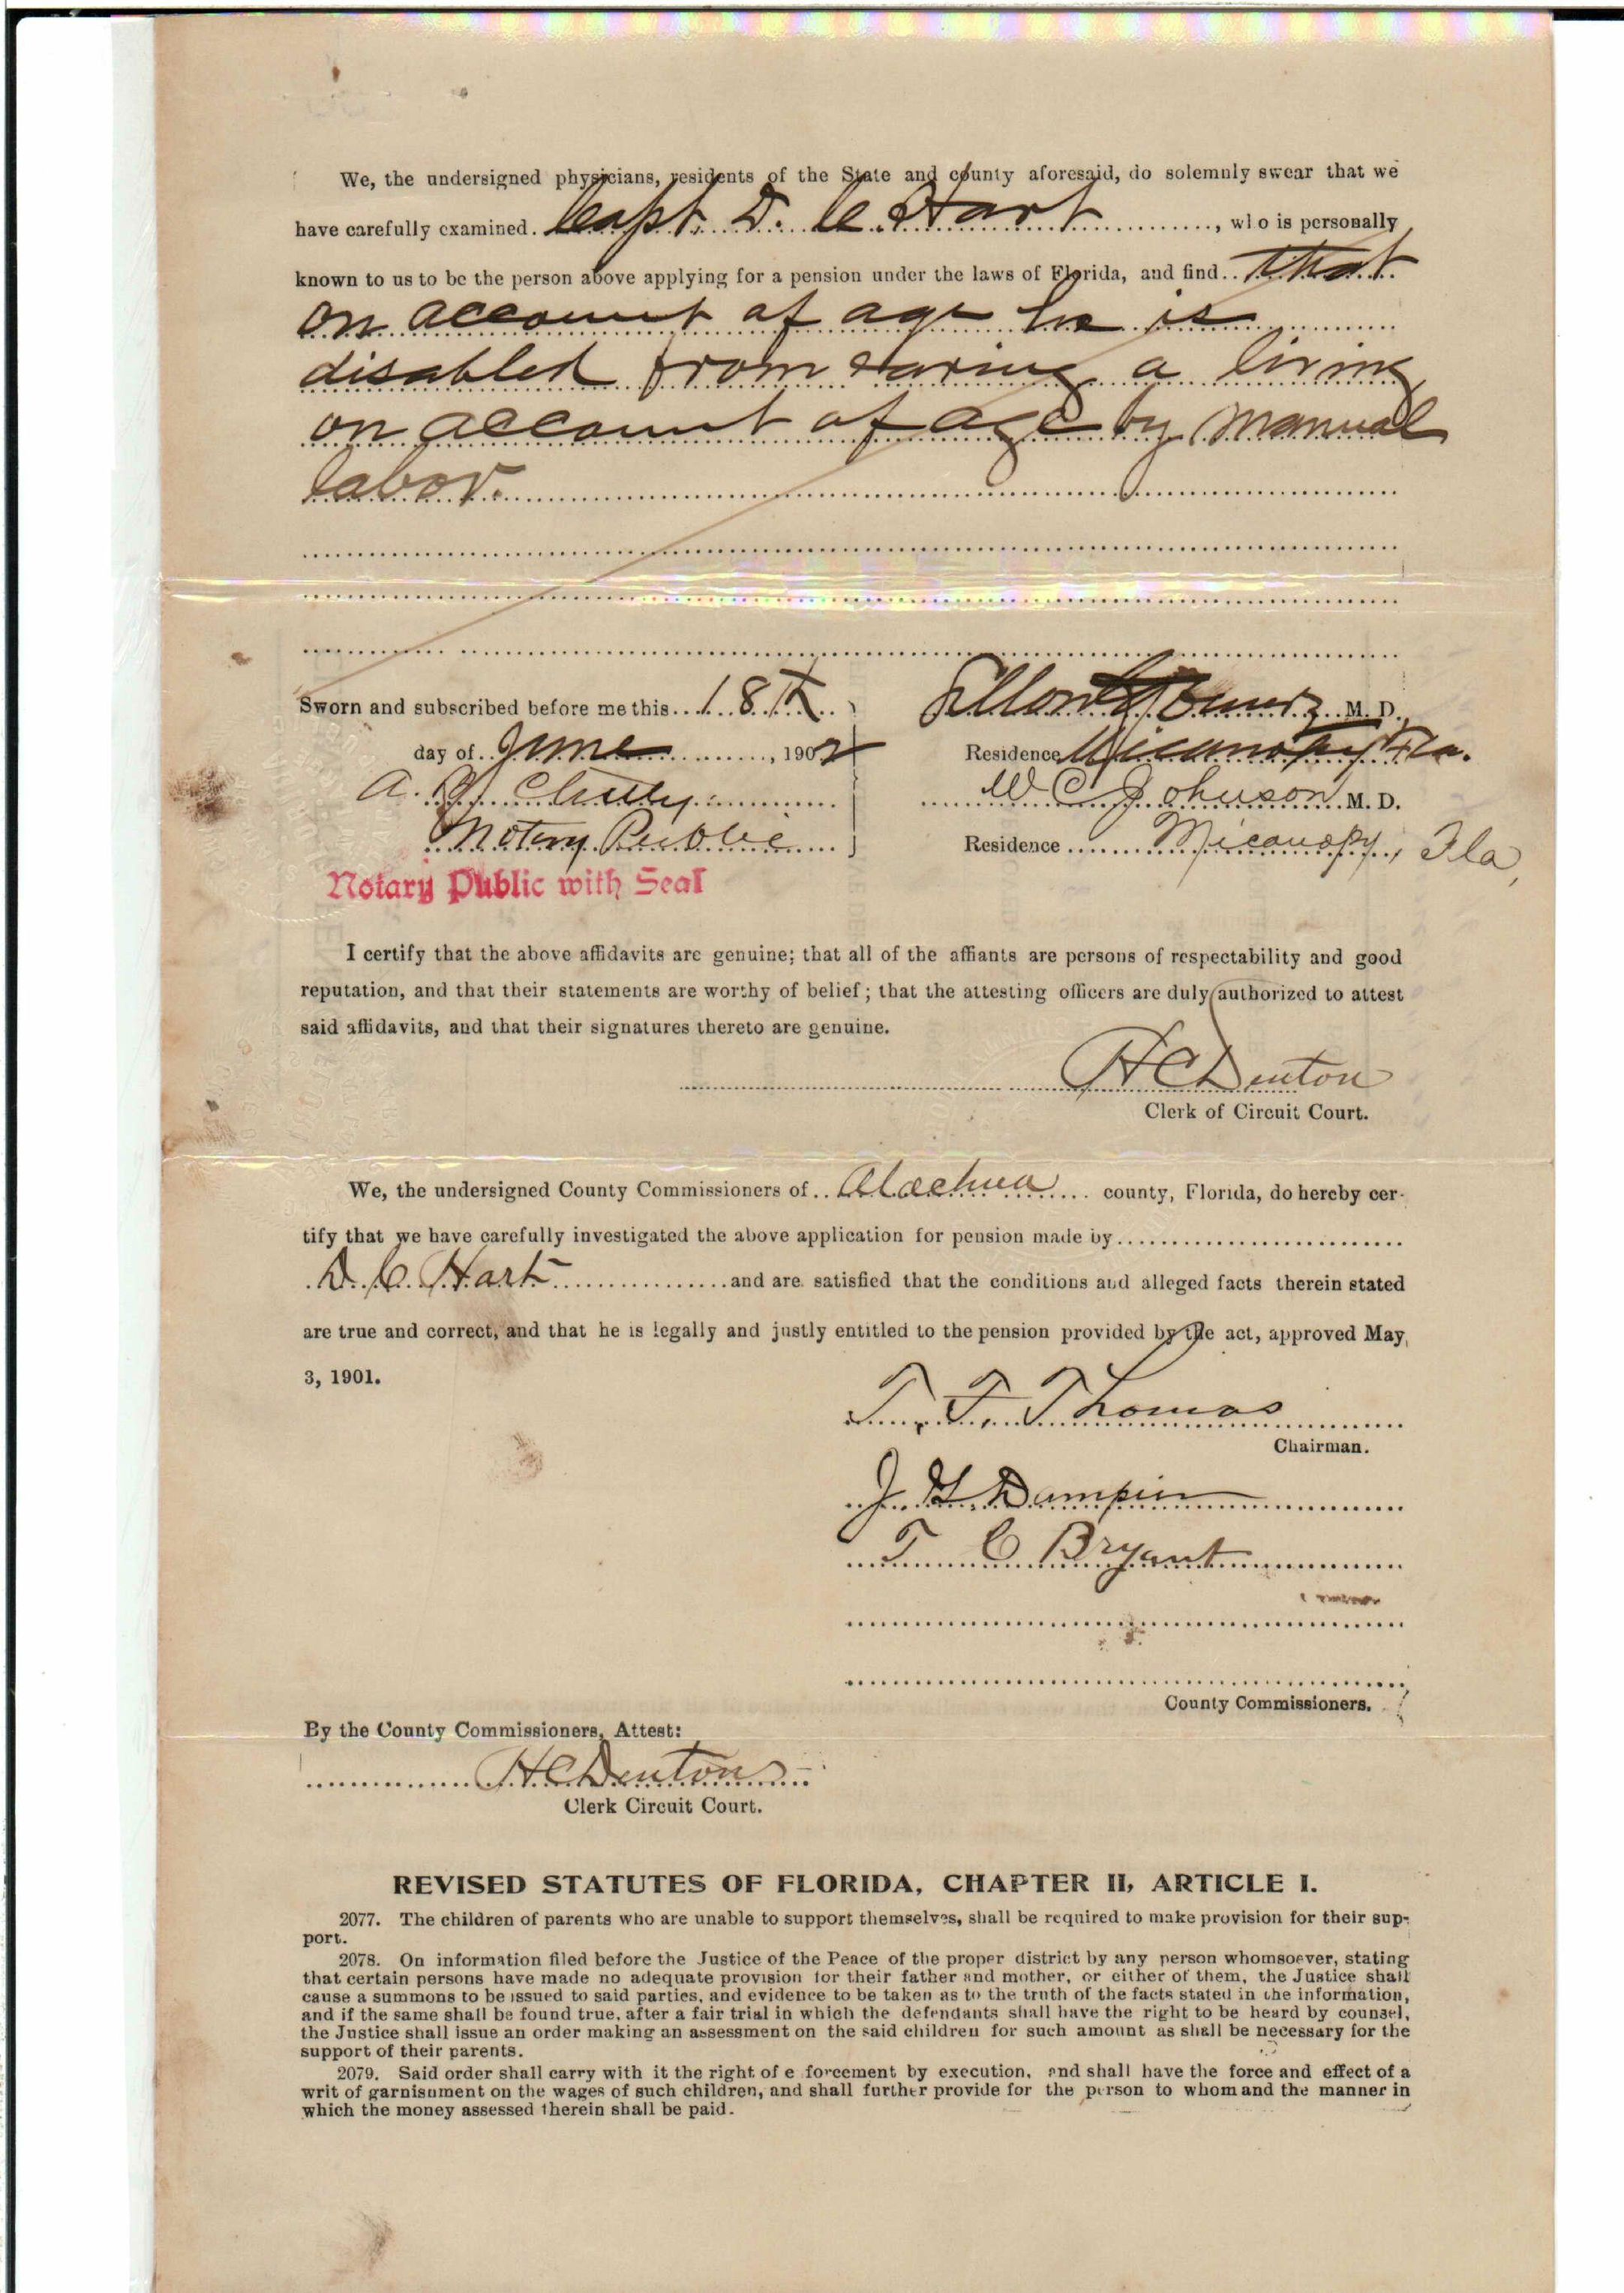 We, the undersigned physicians, residents of the State and county aforesaid, do solemnly swear that we
have carefully examined. Capt. D. C. Hart, who is personally
known to us to be the person above applying for a pension under the laws of Florida, and find.. that
on account of age he is
disabled from earing a living
on account of age by manual
labor.
Sworn and subscribed before me this 18th
day of June, 1902
A.
Notary Public
Notary Public with Seal
M. D.
Residence Micanopy Fla.
W C Johnson M. D.
Residence Micanopy, Fla,
I certify that the above affidavits are genuine; that all of the affiants are persons of respectability and good
reputation, and that their statements are worthy of belief; that the attesting officers are duly authorized to attest
said affidavits, and that their signatures thereto are genuine.
H C Denton
Clerk of Circuit Court.
We, the undersigned County Commissioners of Alachua county, Florida, do hereby cer-
tify that we have carefully investigated the above application for pension made by
D. C. Hart and are satisfied that the conditions and alleged facts therein stated
are true and correct, and that he is legally and justly entitled to the pension provided by the act, approved May
3, 1901.
T. F. Thomas
Chairman.
J G Dampier
T C Bryant
County Commissioners.
By the County Commissioners, Attest:
H C Denton
Clerk Circuit Court.
REVISED STATUTES OF FLORIDA, CHAPTER II, ARTICLE I.
2077. The children of parents who are unable to support themselves, shall be required to make provision for their sup-
port.
2078. On information filed before the Justice of the Peace of the proper district by any person whomsoever, stating
that certain persons have made no adequate provision for their father and mother, or either of them, the Justice shall
cause a summons to be issued to said parties, and evidence to be taken as to the truth of the facts stated in the information,
and if the same shall be found true, after a fair trial in which the defendants shall have the right to be heard by counsel,
the Justice shall issue an order making an assessment on the said children for such amount as shall be necessary for the
support of their parents.
2079. Said order shall carry with it the right of e forcement by execution, and shall have the force and effect of a
writ of garnishment on the wages of such children, and shall further provide for the person to whom and the manner in
which the money assessed therein shall be paid.